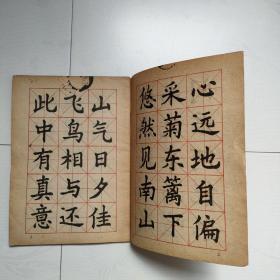 心远地自偏
采菊东篱下
悠然见南山
山气日夕佳
飞鸟相与还
此中有真意